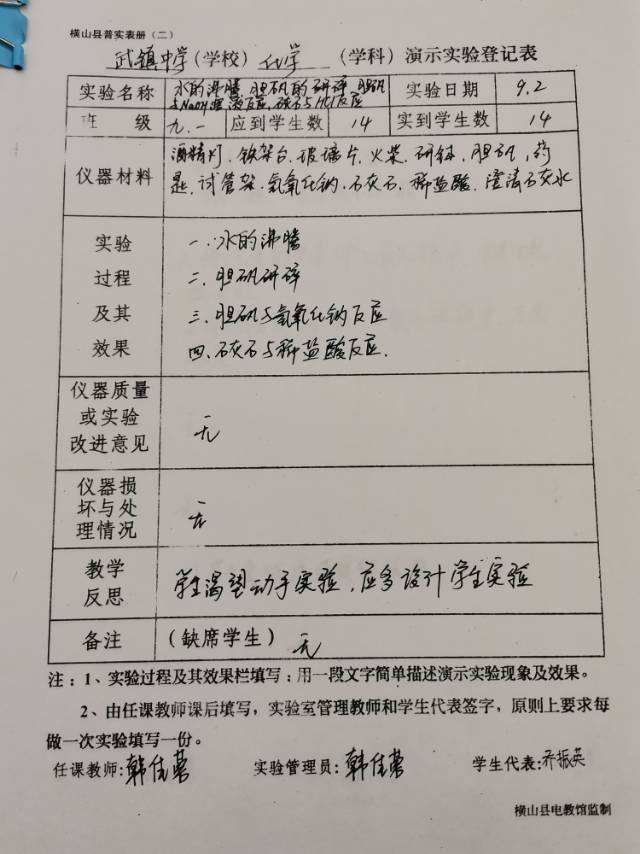 横山县普实表册（二）
武镇中学（学校）化学（学科）演示实验登记表
实验名称 水的沸腾、胆矾的研碎、胆矾与NaOH溶液反应、石灰石与HCl反应 实验日期 9.2
班 级 九.一 应到学生数 14 实到学生数 14
仪器材料 酒精灯、铁架台、玻璃片、火柴、研钵、胆矾、药
匙、试管架、氢氧化钠、石灰石、稀盐酸、澄清石灰水
实验 一、水的沸腾
过程 二、胆矾研碎
及其 三、胆矾与氢氧化钠反应
效果 四、石灰石与稀盐酸反应.
仪器质量
或实验 无
改进意见
仪器损
坏与处 无
理情况
教学
反思 学生渴望动手实验，应多设计学生实验
备注 （缺席学生）无
注：1、实验过程及其效果栏填写：用一段文字简单描述演示实验现象及效果。
2、由任课教师课后填写，实验室管理教师和学生代表签字，原则上要求每
做一次实验填写一份。
任课教师：韩佳蓉 实验管理员：韩佳蓉 学生代表：乔振英
横山县电教馆监制